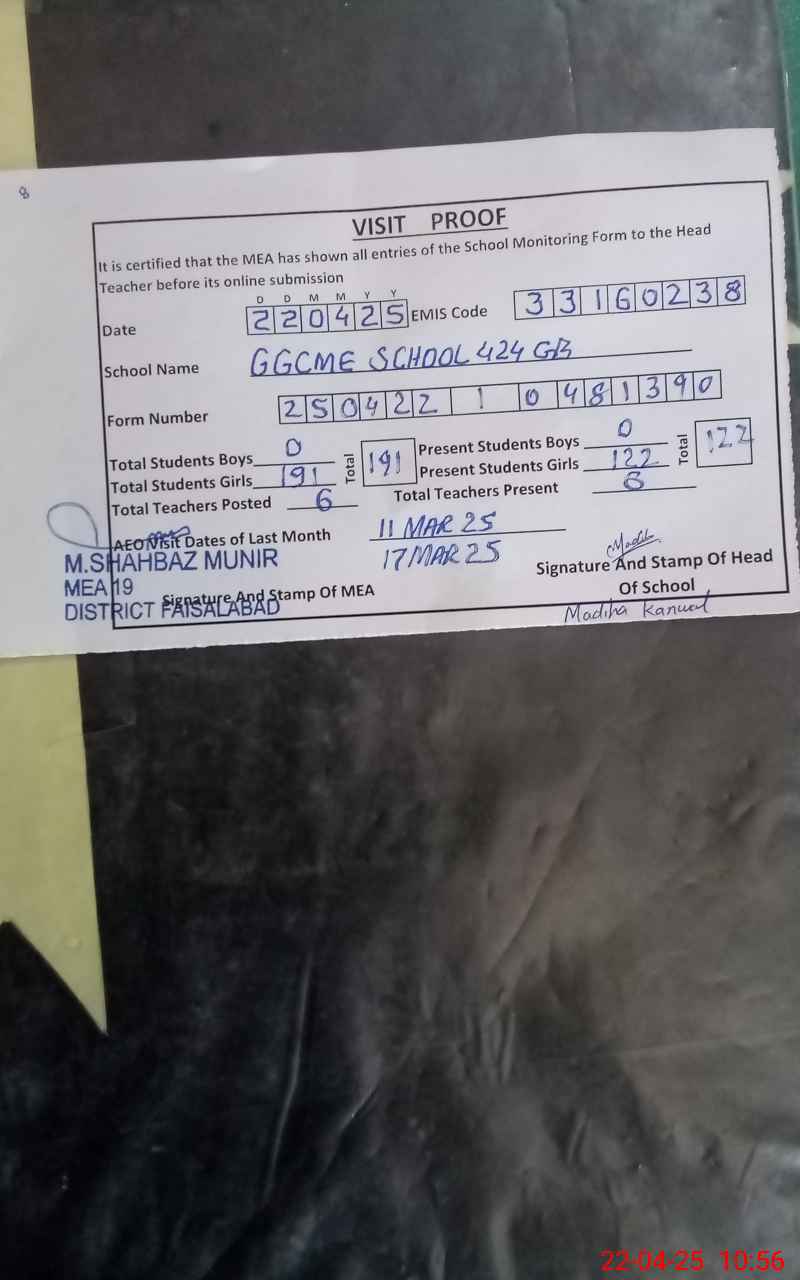 8
VISIT PROOF
It is certified that the MEA has shown all entries of the School Monitoring Form to the Head
Teacher before its online submission
D D M M Y Y
Date 220425 EMIS Code 33160238
School Name GGCME SCHOOL 424 GB
Form Number 250422 1 0481390
Total Students Boys 0 Total 191 Present Students Boys 0 Total 122
Total Students Girls 191 Present Students Girls 122
Total Teachers Posted 6 Total Teachers Present 6
AEO Visit Dates of Last Month 11 MAR 25
17 MAR 25
M.SHAHBAZ MUNIR
MEA 19
DISTRICT FAISALABAD
Signature And Stamp Of MEA
Madiha
Signature And Stamp Of Head
Of School
Madiha Kanwal
22-04-25 10:56